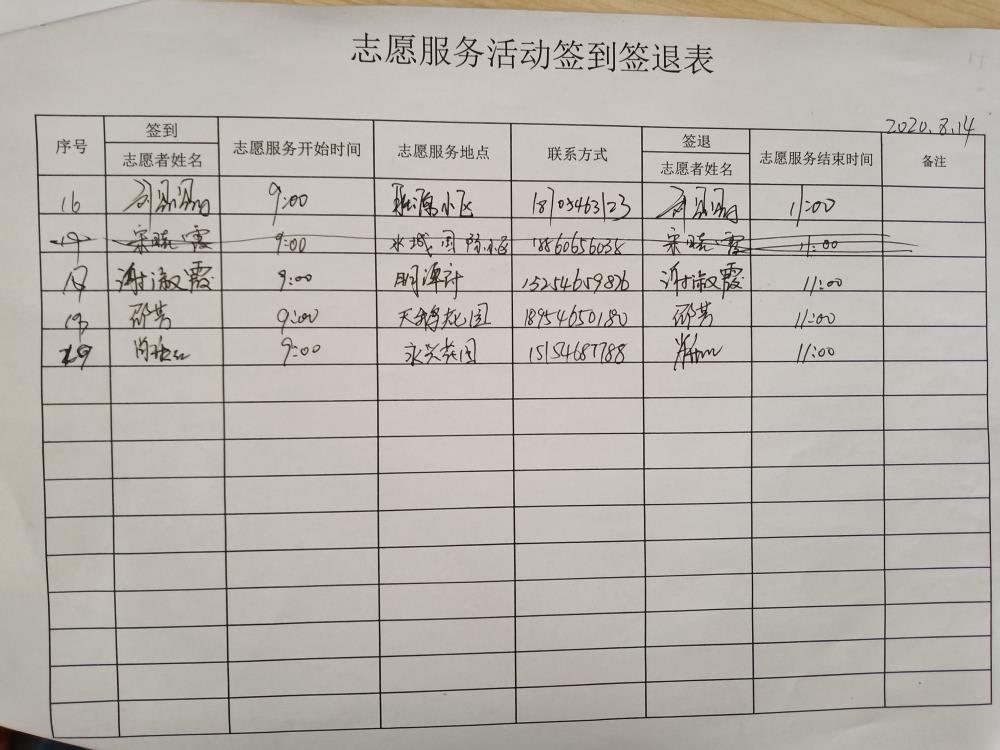 志愿服务活动签到签退表
2020.8.14
序号 签到 志愿服务开始时间 志愿服务地点 联系方式 签退 志愿服务结束时间 备注
志愿者姓名 志愿者姓名
16 9:00 小区 18705463123 11:00
17 宋晓霞 9:00 水城国际小区 18860656038 宋晓霞 11:00
18 谢淑霞 9:00 明潭府 13254659876 谢淑霞 11:00
19 邵芳 9:00 天鹅花园 18954650180 邵芳 11:00
9:00 永兴花园 15154687788 11:00